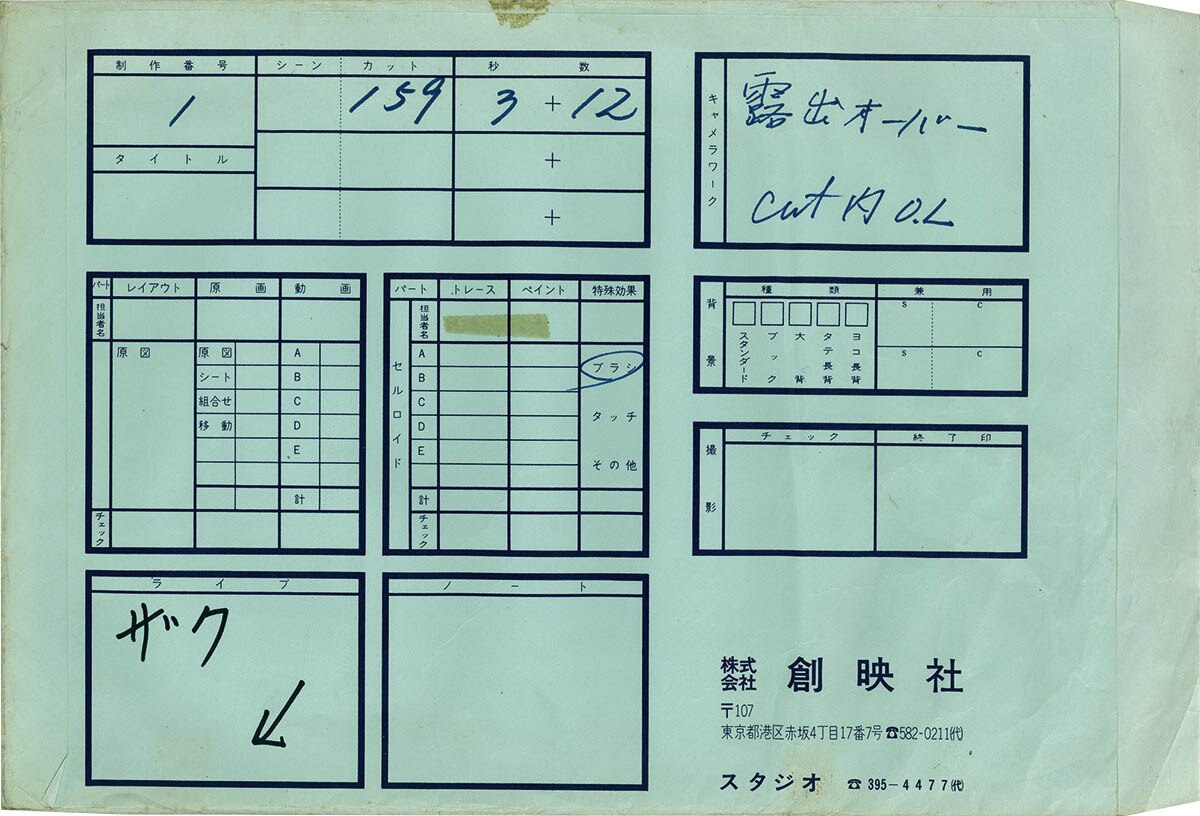 制作番号 シーン カット 秒数
1 159 3+12
タイトル +
+
キャメラワーク
露出オーバー
cut内 O.L
パート レイアウト 原画 動画
担当者名
原図 原図 A
シート B
組合せ C
移動 D
E
計
チェック
パート トレース ペイント 特殊効果
担当者名
セルロイド
A
B ブラシ
C
D タッチ
E
その他
計
チェック
背景
種類 兼用
スタンダード ブック 大背 タテ長背 ヨコ長背
S C
S C
撮影
チェック 終了印
ライブ
ザク
↙
ノート
株式会社 創映社
〒107
東京都港区赤坂4丁目17番7号 ☎582-0211(代)
スタジオ ☎395-4477(代)